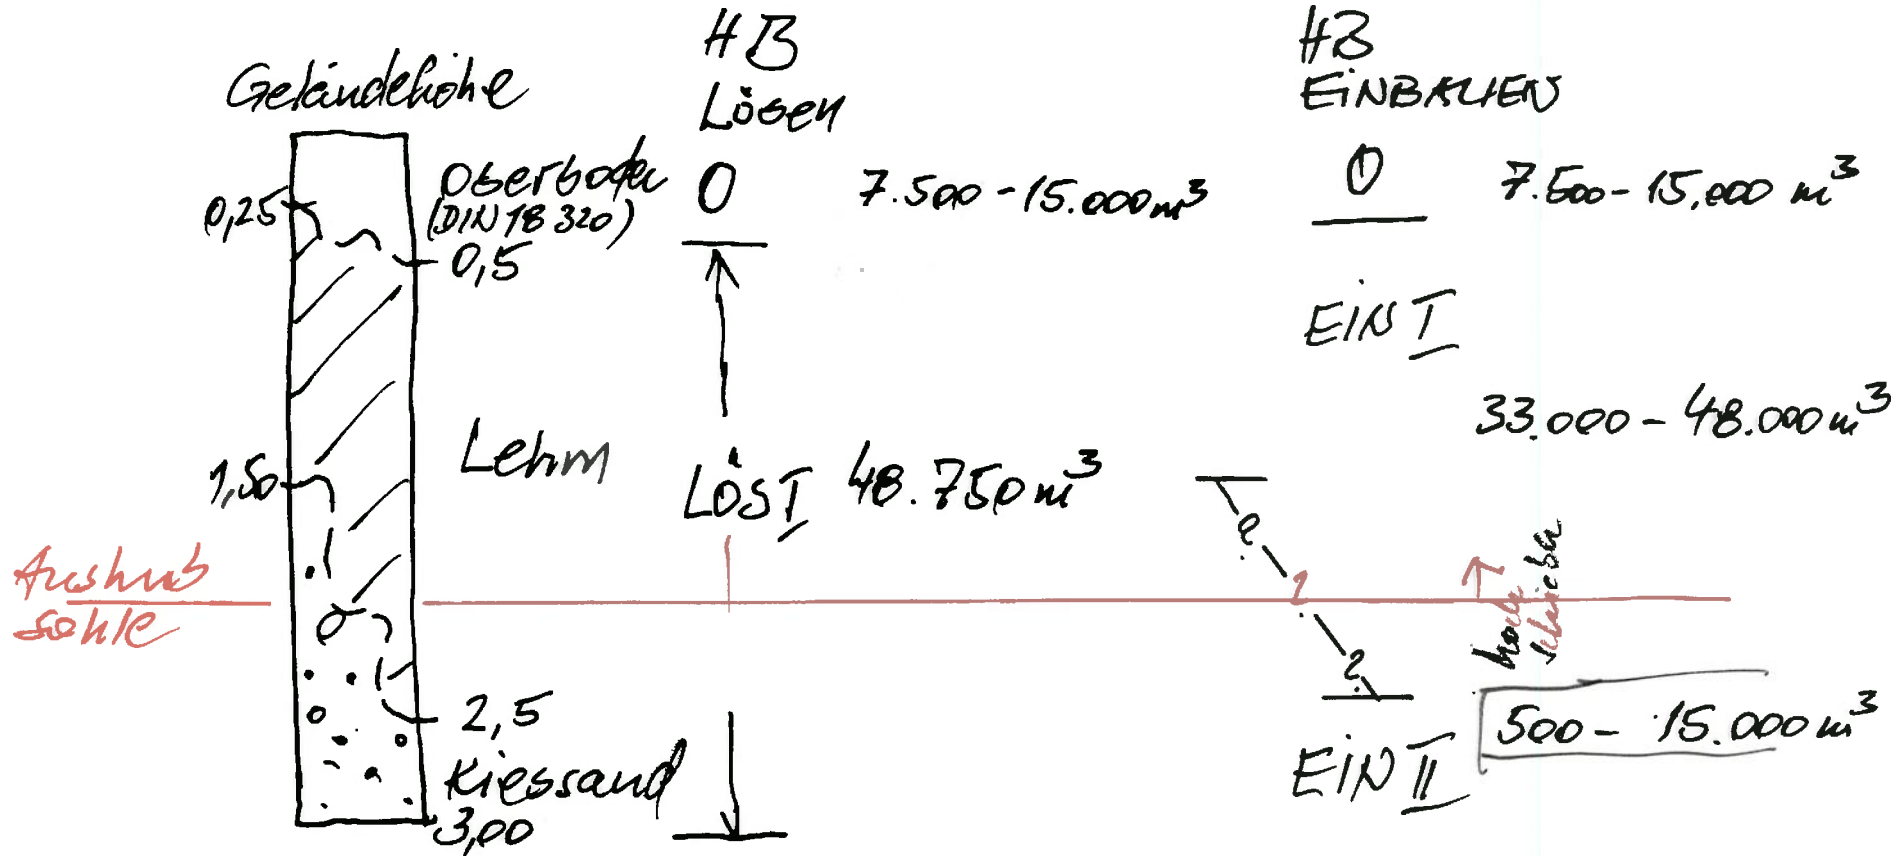 Geländehöhe
0,25
Oberboden
(DIN 18 320)
0,5
Lehm
1,50
Aushub
sohle
2,5
Kiessand
3,00
HB
Lösen
O
7.500 - 15.000 m³
LÖS I 48.750 m³
HB
EINBAUEN
O
7.500 - 15.000 m³
EIN I
33.000 - 48.000 m³
?
?
?
EIN II
500 - 15.000 m³